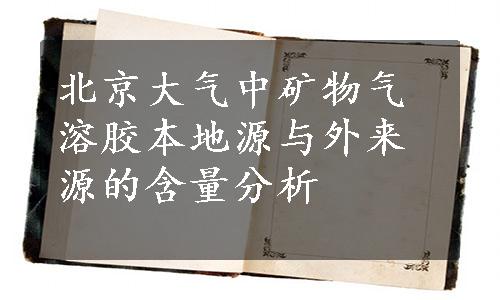 北京大气中矿物气
溶胶本地源与外来
源的含量分析